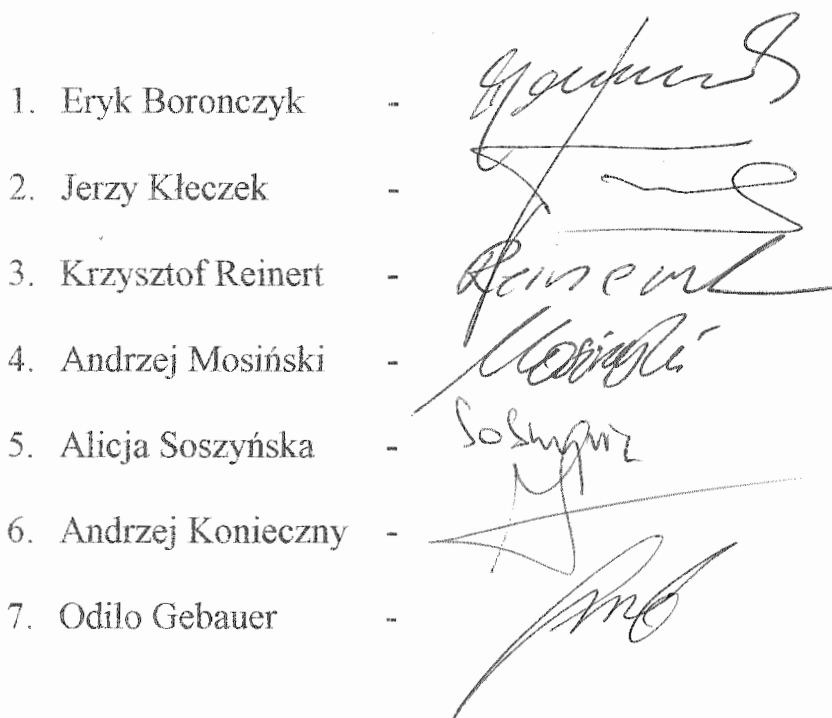 1. Eryk Boronczyk -
2. Jerzy Kłeczek -
3. Krzysztof Reinert - Reinert
4. Andrzej Mosiński - Mosiński
5. Alicja Soszyńska -
6. Andrzej Konieczny -
7. Odilo Gebauer -